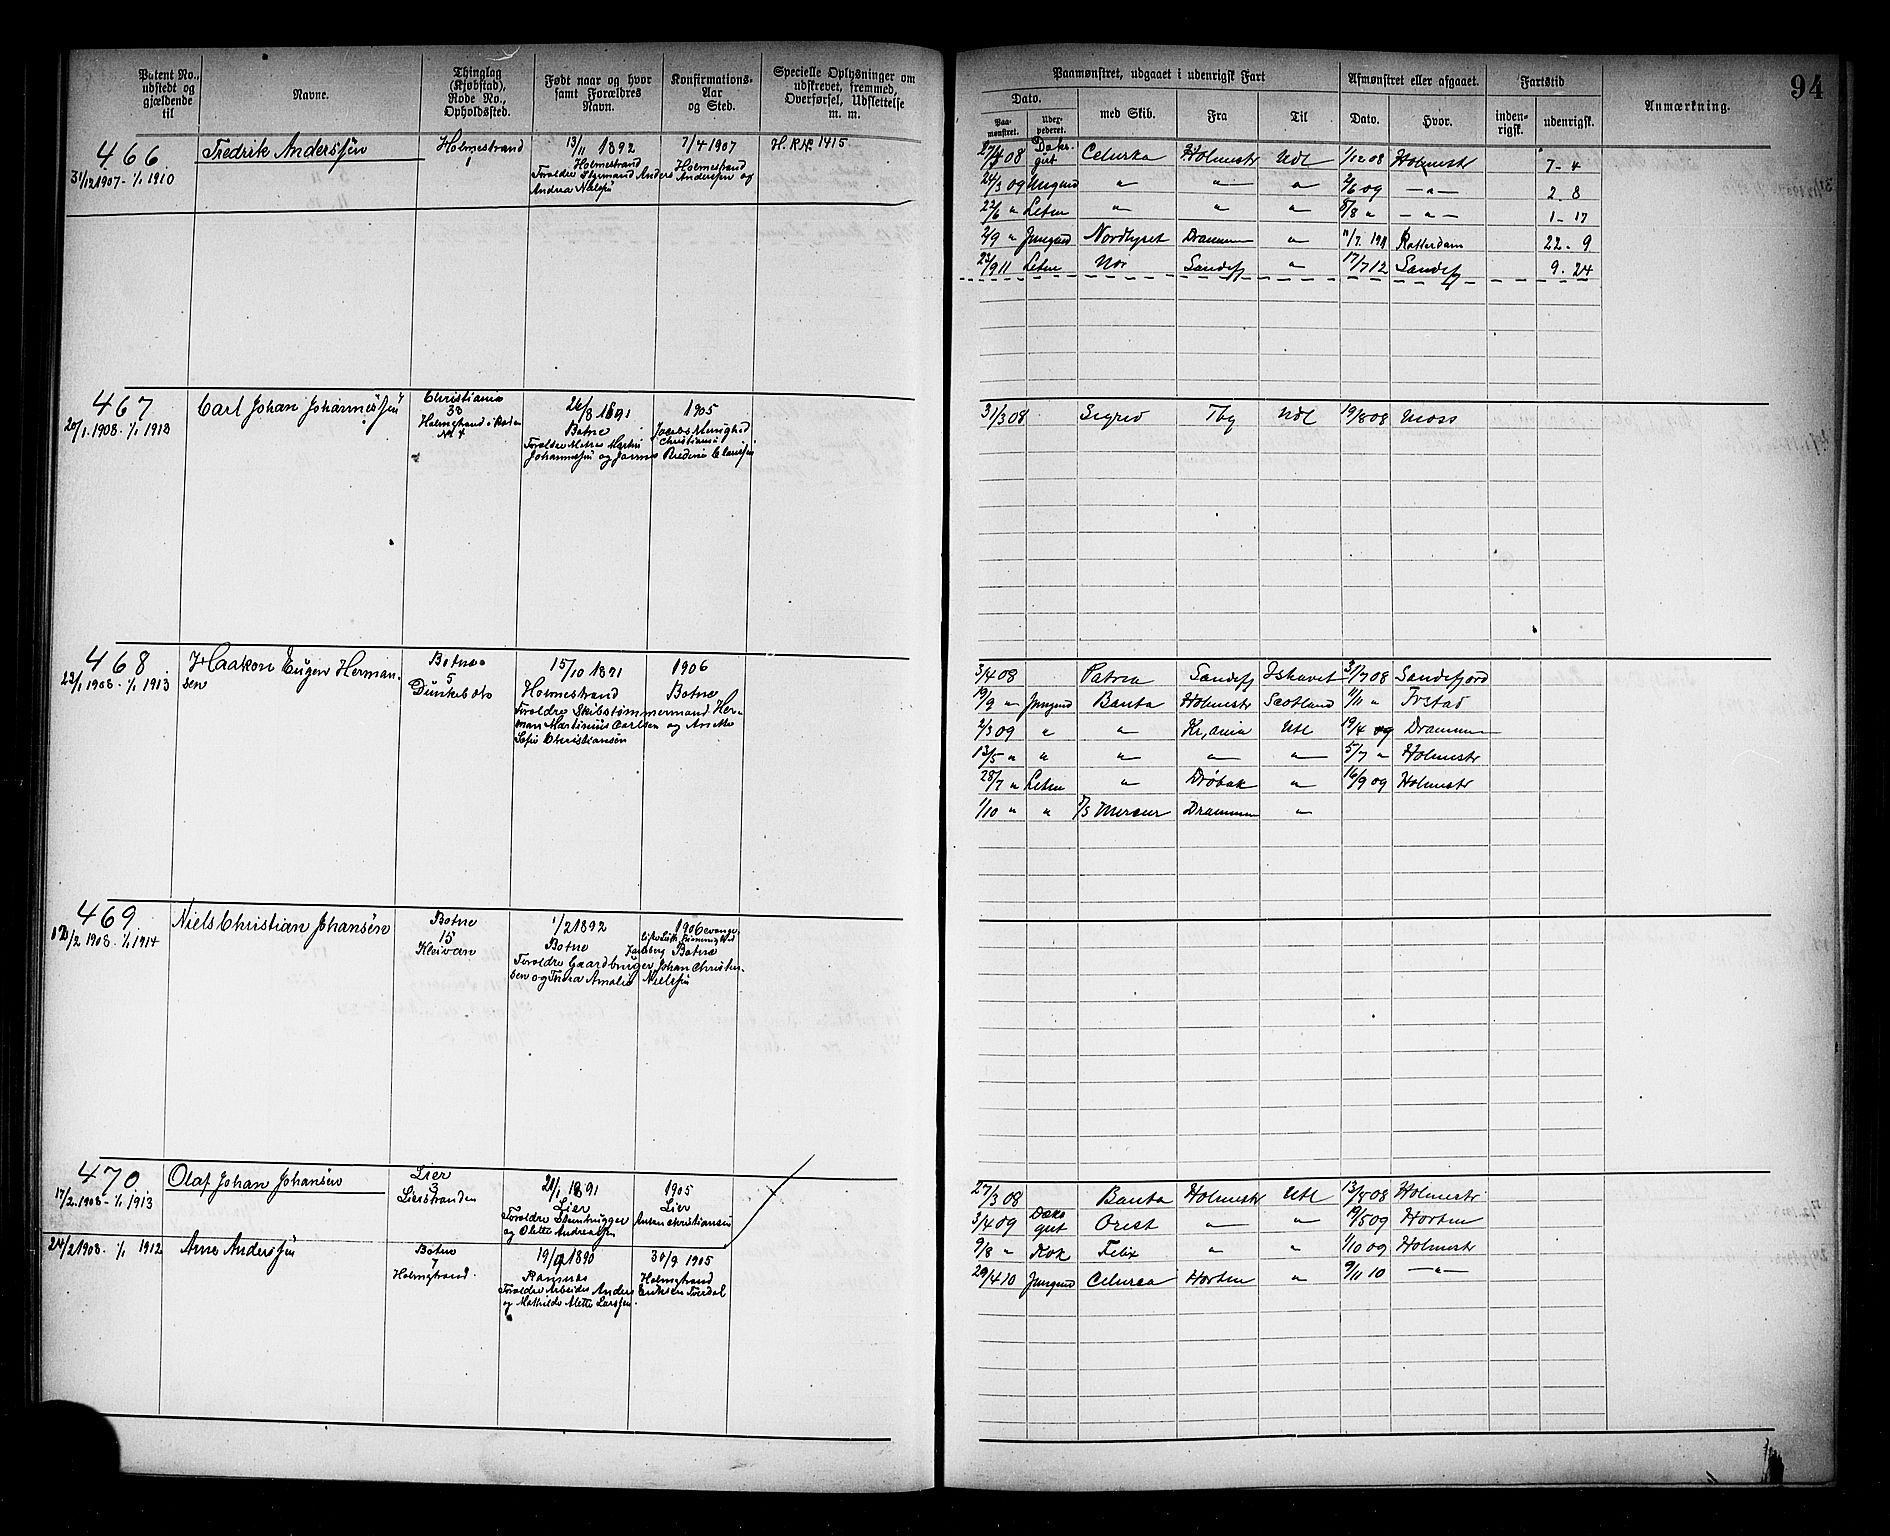 94
Patent No., udstedt og gjældende til
Navne.
Thinglag (Kjøbstad), Rode No., Opholdssted.
Født naar og hvor samt Forældres Navn.
Konfirmations-Aar og Sted.
Specielle Oplysninger om udskrevet, fremmed, Overførsel, Udslettelse m. m.
Paamønstret, udgaaet i udenrigsk Fart
Dato.
Paa-mønstret.
med Skib.
Fra
Til
Afmønstret eller afgaaet.
Dato.
Hvor.
Fartstid
inden-rigsk.
udenrigsk.
Anmærkning.
466
31/12 1907 - 1/1 1910
Fredrik Anderssen
Holmestrand
1
13/11 1892
Holmestrand
Forældre Styrmand Anders Anderssen og
Andrea Nielsen
7/4 1907
Holmestrand
H.R.№ 1415
27/4 08 Dæksgut Celurca Holmestr Udl 1/12 08 Holmestr 7 - 4
24/3 09 Jungmd " " " 2/6 09 - " - 2 - 8
22/6 " Letm " " " 8/8 " - " - 1 - 17
2/9 " Jungmd Nordlyset Drammen " 11/7 1911 Rotterdam 22 - 9
23/9 11 Letm Nor Sandefj " 17/7 12 Sandefj 9 - 24
467
20/1 1908 - 1/1 1913
Carl Johan Johannessen
Christiania
38
Holmestrand
№ 4
26/8 1891
Botne
Forældre Martin
Johannessen og
1905
Jacobs Menighed
Christiania
31/3 08 Sigred Tbg Udl 19/8 08 Moss
468
23/1 1908 - 1/1 1913
Haakon Eugen Hermansen
Botne
5
15/10 1891
Holmestrand
Forældre Skibstømmermand Herman Martinius Carlsen og Anette
Sofie Christiansen
1906
Botne
3/4 08 Patria Sandefj Ishavet 31/7 08 Sandefjord
19/9 " Jungmd Banta Holmestr Scotland 11/11 " Frstad
2/3 09 " " Kr,ania Utl 19/4 09 Drammen
13/5 " " " " " 5/7 " Holmestr
28/7 " Letm " Drøbak " 16/9 09 Holmestr
1/10 " " D/S Mercur Drammen "
469
12/2 1908 - 1/1 1914
Niels Christian Johansen
Botne
15
Kleivan
1/2 1892
Botne
Forældre Gaardbruger Johan Christensen og Thora Amalie Nielsen
1906
Botne
470
17/2 1908 - 1/1 1913
Olaf Johan Johansen
Lier
3
Lierstranden
21/1 1891
Lier
Forældre Stenhugger Anton Christiansen
og Olette Andreassen
1905
Lier
27/3 08 Banta Holmestr Utl 13/8 08 Holmestr
3/4 09 Dæksgut Orest " " 19/5 09 Horten
9/8 " Kok Felix " " 1/10 09 Holmestr
29/4 10 Jungmd Celurca Horten " 9/11 10 - " -
24/2 1908 - 1/1 1912
Arne Anderssen
Botne
7
Holmestrand
1890
Ramnes
Forældre Arbeider Anders
og Mathilde Alette Larssen
30/9 1905
Holmestrand